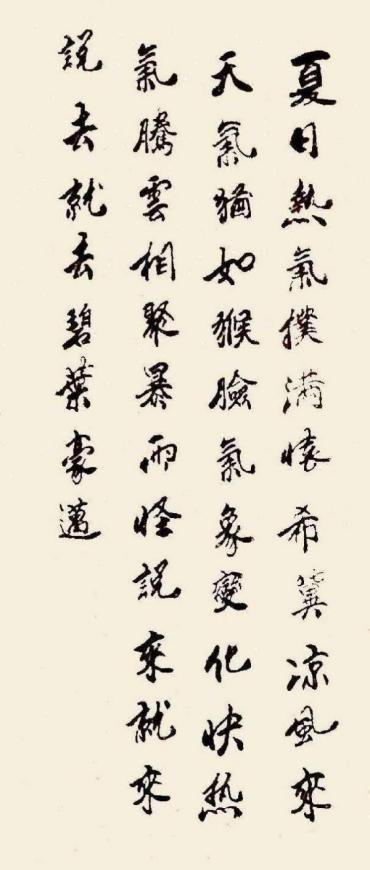 夏日熱氣撲滿懐希冀凉風來
天氣猶如猴臉氣象變化快热
氣騰雲相聚暴雨怪説來就來
説去就去碧葉豪邁